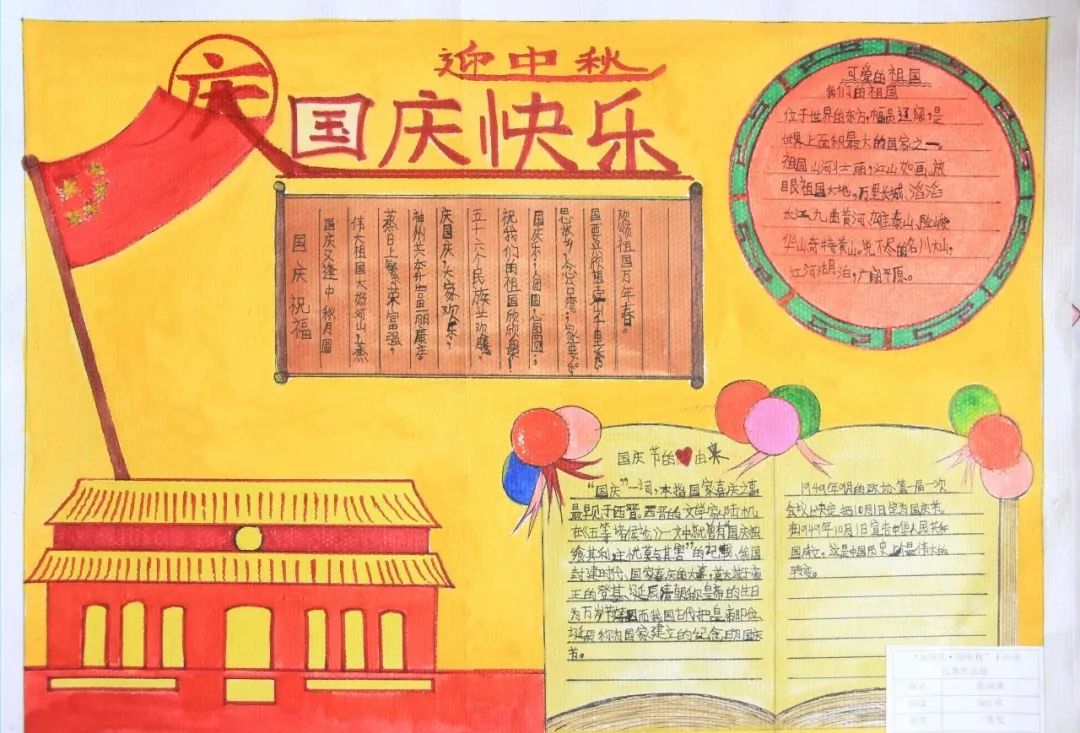 庆
迎中秋
国庆快乐
国庆祝福
国庆又逢中秋月圆
伟大祖国大好河山,蒸
蒸日上繁荣富强;
神州共奔富丽康庄。
庆国庆,大家欢乐;
五十六个民族欢腾,
祝我们的祖国欣欣
国庆乐,人团圆,心圆圆;
思故乡,念台湾;
欢颂祖国万年春。
可爱的祖国
我们的祖国
位于世界的东方,幅员辽阔,是
世界上面积最大的国家之一。
祖国山河壮丽,江山如画,放
眼祖国大地。万里长城、滔滔
长江,九曲黄河,雄泰山、险峻
华山奇特黄山。说不尽的名川大山,
江河湖泊,广阔平原。
国庆节的由来
“国庆”一词,本指国家喜庆之事
最早见于西晋。西晋的文学家陆机
在《五等诸侯论》一文中就曾有“国庆独
飨其利,主忧莫与其害”的记载、我国
封建时代、国家喜庆的大事,莫大过于帝
王的登基、诞辰清朝称皇帝的生日
为万岁节 而我国古代把皇帝即位、
诞辰称为国家建立的纪念日 国庆
节。
1949年9月的政协第一届一次
会议上决定 把10月1日定为国庆节。
在1949年10月1日宣告中华人民共和
国成立,这是中国历史上最伟大的
转变。